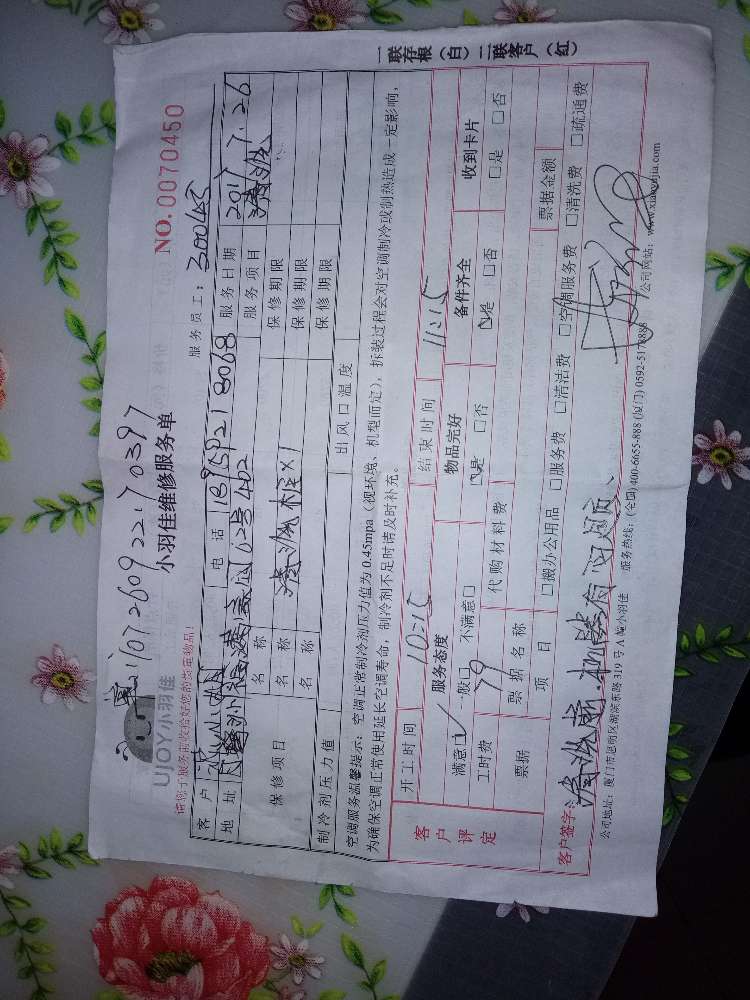 2170726092217 0397
UJOY小羽佳
小羽佳维修服务单
NO.0070450
服务员工：30045
客户 电话 服务日期 2017 7.26
地址 402 服务项目 清洗
保修项目 名称 保修期限
名称 清洗 ×1 保修期限
名称 保修期限
制冷剂压力值 出风口温度
空调服务温馨提示：空调正常制冷剂压力值为0.45mpa（视环境、机型而定），拆装过程会对空调制冷或制热造成一定影响，
为确保空调正常使用延长空调寿命，制冷剂不足时请及时补充。
客户评定
开工时间 10:15 结束时间 11:15
服务态度 物品完好 备件齐全 收到卡片
满意□ 一般□ 不满意□ □是 □否 □是 □否 □是 □否
工时费 79 代购材料费
票据 票据名称 票据金额
项目 □搬办公用品 □服务费 □清洁费 □空调服务费 □清洗费 □疏通费
客户签字： 清洗前
公司地址：厦门市思明区湖滨东路319号A幢小羽佳 服务热线：(全国)400-6655-888 (厦门) 0592-5178888 公司网站：www.xiaoyujia.com
一联存根（白）二联客户（红）